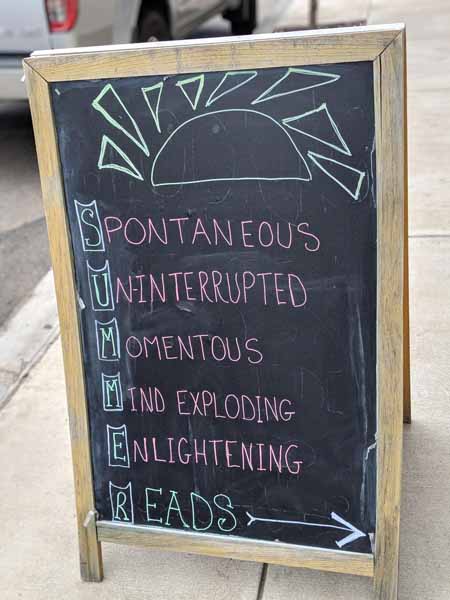 SPONTANEOUS
UN-INTERRUPTED
MOMENTOUS
MIND EXPLODING
ENLIGHTENING
READS